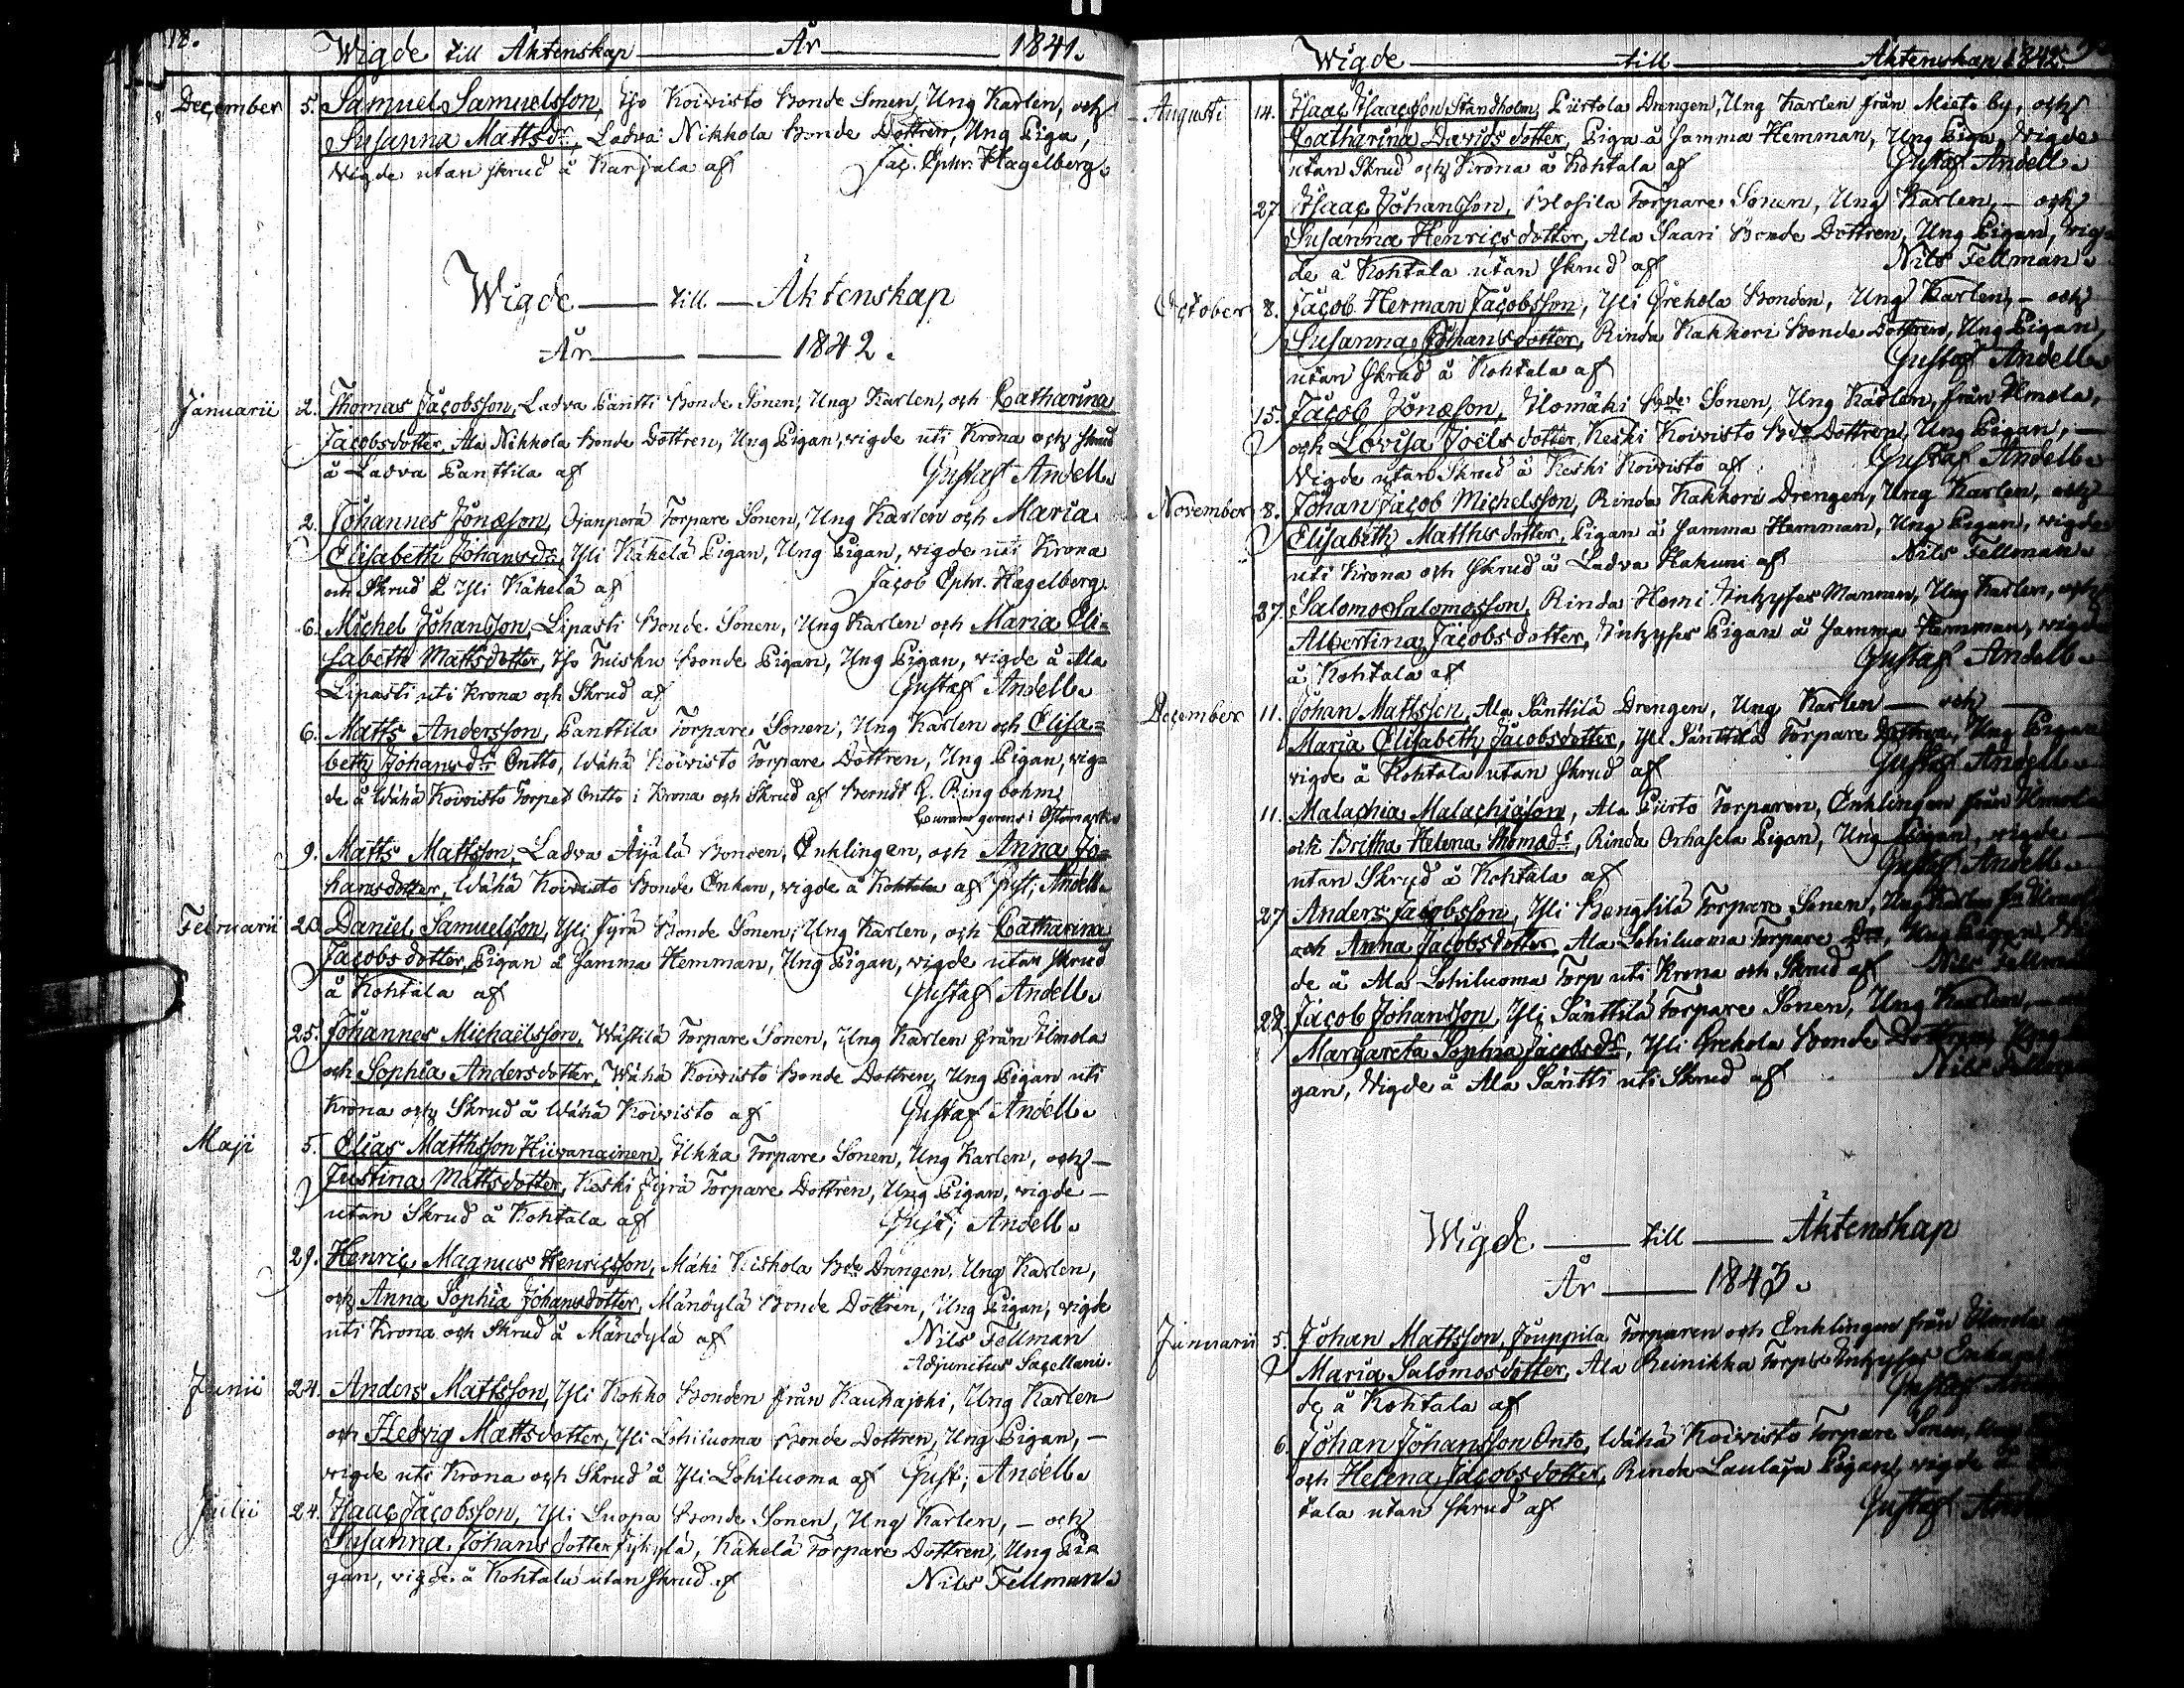 18.
Wigde till Äktenskap År 1841.
December 5. Samuel Samuelsson, Iso Koivisto Bonde Sonen, Ung Karlen, och
Susanna Mattsdr, Ladva Nikkola Bonde Dottren, Ung Piga,
Wigde utan skrud å Karjala af Jac. Ephr. Hagelberg.
Wigde till Äktenskap
År 1842.
Januarii 2. Thomas Jacobsson, Ladva Pantti Bonde Sonen, Ung Karlen, och Catharina
Jacobsdotter, Ala Nikkola Bonde Dottren, Ung Pigan, vigde uti Krona och Skrud
å Ladva Panttila af Gustaf Andell.
2. Johannes Jonæson, Ojanperä Torpare Sonen, Ung Karlen och Maria
Elisabeth Johansdr, Yli Käkelä Pigan, Ung Pigan, vigde uti Krona
och Skrud å Yli Käkelä af Jacob Ephr. Hagelberg.
6. Michel Johansson, Lipasti Bonde Sonen, Ung Karlen och Maria Eli=
sabeth Mattsdotter, Iso Tuisku Bonde Pigan, Ung Pigan, vigde å Ala
Lipasti uti Krona och Skrud af Gustaf Andell.
6. Matts Andersson, Panttila Torpare Sonen, Ung Karlen och Elisa=
beth Johansdr Ontto, Wähä Koivisto Torpare Dottren, Ung Pigan, vig=
de å Wähä Koivisto Torpet Ontto i Krona och Skrud af Berndt G. Ringbohm
Curam gerens i Östermark.
9. Matts Mattsson, Ladva Äijälä Bonden, Enklingen, och Anna Jo=
hansdotter, Wähä Koivisto Bonde Enkan, vigde å Kohtala af Gust; Andell.
Februarii 20. Daniel Samuelsson, Yli Jyrä Bonde Sonen, Ung Karlen, och Catharina
Jacobsdotter, Pigan å Samma Hemman, Ung Pigan, vigde utan Skrud
å Kohtala af Gustaf Andell.
25. Johannes Michaelsson, Wästilä Torpare Sonen, Ung Karlen från Ilmola
och Sophia Andersdotter, Wähä Koivisto Bonde Dottren, Ung Pigan uti
Krona och Skrud å Wähä Koivisto af Gustaf Andell.
Maji 5. Elias Matthsson Hiivanainen, Ilkka Torpare Sonen, Ung Karlen, och
Justina Mattsdotter, Keski Jyrä Torpare Dottren, Ung Pigan, vigde
utan Skrud å Kohtala af Gust; Andell.
29. Henric Magnus Henricsson, Mäki Kiskola Bde Drengen, Ung Karlen,
och Anna Sophia Johansdotter, Mändylä Bonde Dottren, Ung Pigan, vigde
uti Krona och Skrud å Mändylä af Nils Fellman
Adjunctus Sacellani.
Junii 24. Anders Mattsson, Yli Kokko Bonden från Kauhajoki, Ung Karlen
och Hedvig Mattsdotter, Yli Lohiluoma Bonde Dottren, Ung Pigan,
vigde uti Krona och Skrud å Yli Lohiluoma af Gust; Andell.
Julii 24. Isaac Jacobsson, Yli Luopa Bonde Sonen, Ung Karlen, och
Susanna Johansdotter Jykylä, Käkelä Torpare Dottren, Ung Pi=
gan, vigde å Kohtala utan Skrud af Nils Fellman.
Wigde till Äktenskap 1842.
Augusti 14. Isaac Isaacsson Strandholm, Piirtola Drengen, Ung Karlen från Mieto by, och
Catharina Davidsdotter, Piga å Samma Hemman, Ung Piga, Wigde
utan Skrud och Krona å Kohtala af Gustaf Andell.
27. Isaac Johansson, Klosila Torpare Sonen, Ung Karlen, och
Susanna Henricsdotter, Ala Saari Bonde Dottren, Ung Pigan, vig=
de å Kohtala utan Skrud af Nils Fellman.
October 8. Jacob Herman Jacobsson, Yli Orekola Bonden, Ung Karlen, och
Susanna Johansdotter, Rinda Kakkori Bonde Dottren, Ung Pigan,
utan Skrud å Kohtala af Gustaf Andell.
15. Jacob Jonæson, Ilomäki Bde Sonen, Ung Karlen, från Ilmola,
och Lovisa Joelsdotter, Keski Koivisto Bde Dottren, Ung Pigan,
Wigde utan Skrud å Keski Koivisto af Gustaf Andell.
November 8. Johan Jacob Michelsson, Rinda Kakkori Drengen, Ung Karlen, och
Elisabeth Matthsdotter, Pigan å Samma Hemman, Ung Pigan, vigde
uti Krona och Skrud å Ladva Kakuri af Nils Fellman.
27. Salomo Salomosson, Rinda Homi Inhyses Mannen, Ung Karlen, och
Albertina Jacobsdotter, Inhyses Pigan å Samma Hemman, vigde
å Kohtala af Gustaf Andell.
December 11. Johan Mattsson, Ala Säntti​lä Drengen, Ung Karlen och
Maria Elisabeth Jacobsdotter, Yli Sänttilä Torpare Dottren, Ung Pigan
vigde å Kohtala utan Skrud af Gustaf Andell.
11. Malachia Malachiæson, Ala Piirto Torparen, Enklingen från Ilmola
och Britha Helena Thomædr, Rinda Orhasela Pigan, Ung Pigan, vigde
utan Skrud å Kohtala af Gustaf Andell.
27. Anders Jacobsson, Yli Bengtilä Torpare Sonen, Ung Karlen fr Ilmola
och Anna Jacobsdotter, Ala Lohiluoma Torpare Dr, Ung Pigan,
de å Ala Lohiluoma Torp uti Krona och Skrud af Nils Fellman
28. Jacob Johansson, Yli Sänttilä Torpare Sonen, Ung Karlen,
Margareta Sophia Jacobsdr, Yli Orekola Bonde Dottren, Ung
gan, Wigde å Ala Säntti uti Skrud af Nils Fellman
Wigde till Äktenskap
År 1843.
Januarii 5. Johan Mattsson, Jouppila Torparen och Enklingen från Ilmola
Maria Salomosdotter, Ala Reinikka Torps Inhyses Enkan
de å Kohtala af Gustaf
6. Johan Johansson Onto, Wähä Koivisto Torpare Sonen, Ung
och Helena Jacobsdotter, Rinda Laulaja Pigan, vigde å
tala utan Skrud af Gustaf